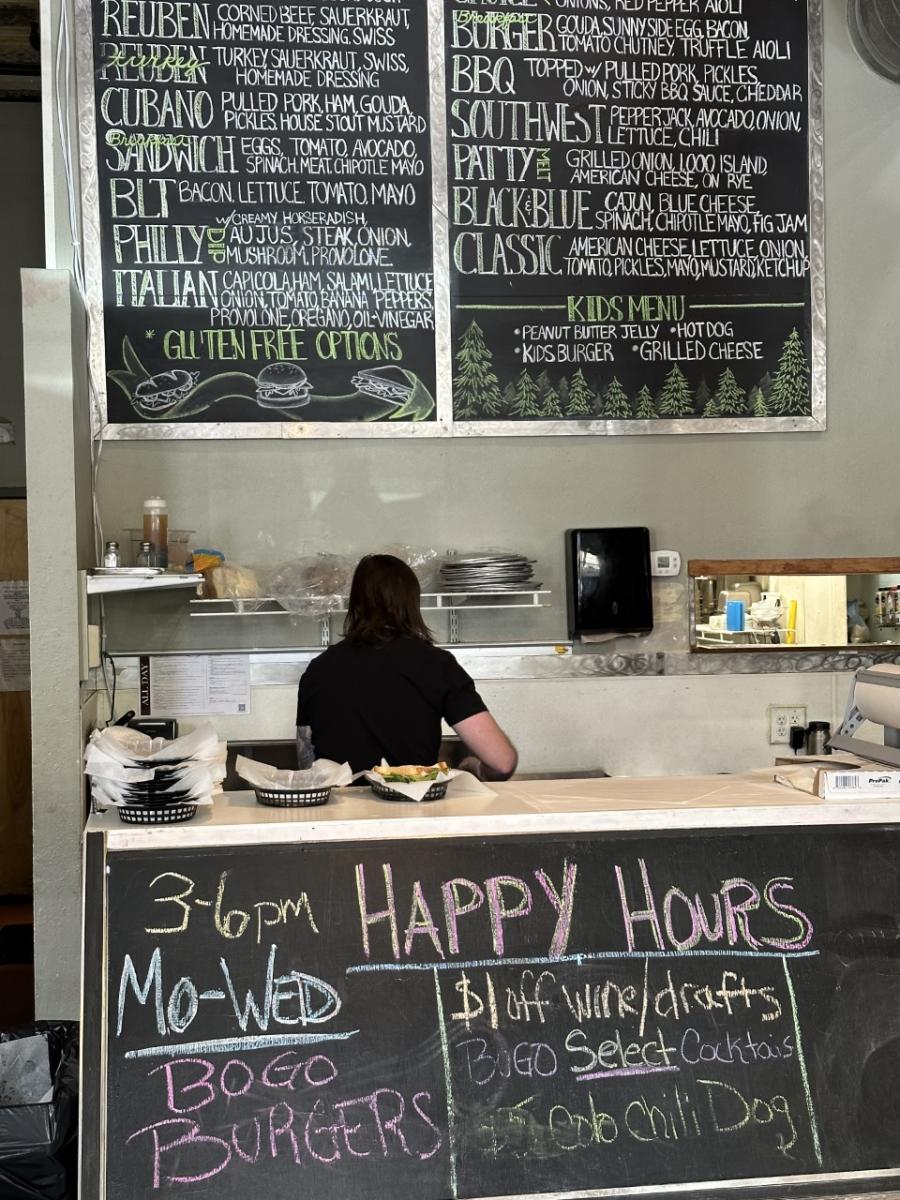 REUBEN CORNED BEEF, SAUERKRAUT,
HOMEMADE DRESSING, SWISS
turkey
REUBEN TURKEY, SAUERKRAUT, SWISS,
HOMEMADE DRESSING
CUBANO PULLED PORK, HAM, GOUDA,
PICKLES, HOUSE STOUT MUSTARD
Breakfast
SANDWICH EGGS, TOMATO, AVOCADO,
SPINACH, MEAT, CHIPOTLE MAYO
BLT BACON, LETTUCE, TOMATO, MAYO
PHILLY DIP W/ CREAMY HORSERADISH,
AU JUS, STEAK, ONION,
MUSHROOM, PROVOLONE
ITALIAN CAPICOLA, HAM, SALAMI, LETTUCE
ONION, TOMATO, BANANA PEPPERS,
PROVOLONE, OREGANO, OIL+VINEGAR
* GLUTEN FREE OPTIONS
ONIONS, RED PEPPER AIOLI
Breakfast
BURGER GOUDA, SUNNYSIDE EGG, BACON,
TOMATO CHUTNEY, TRUFFLE AIOLI
BBQ TOPPED W/ PULLED PORK, PICKLES,
ONION, STICKY BBQ SAUCE, CHEDDAR
SOUTHWEST PEPPERJACK, AVOCADO, ONION,
LETTUCE, CHILI
PATTY MELT GRILLED ONION, 1,000 ISLAND,
AMERICAN CHEESE, ON RYE
BLACK & BLUE CAJUN, BLUE CHEESE,
SPINACH, CHIPOTLE MAYO, FIG JAM
CLASSIC AMERICAN CHEESE, LETTUCE, ONION,
TOMATO, PICKLES, MAYO, MUSTARD, KETCHUP
KIDS MENU
• PEANUT BUTTER JELLY • HOT DOG
• KIDS BURGER • GRILLED CHEESE
ALL DAY
ProPak
3-6pm HAPPY HOURS
MO-WED
BOGO
BURGERS
$1 off wine/drafts
BOGO Select Cocktails
$5 Colo Chili Dog